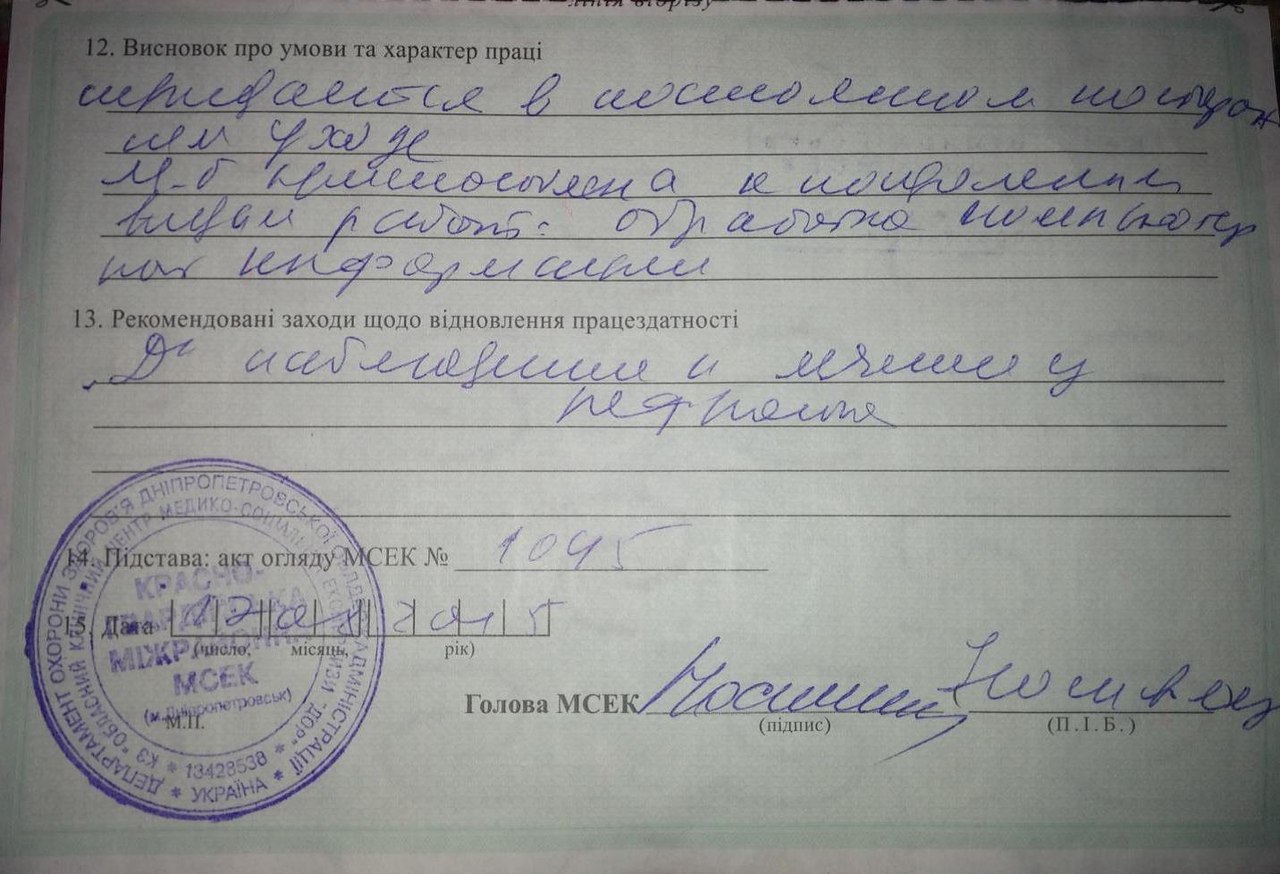 лінія відрізу
12. Висновок про умови та характер праці
нуждается в постоянном посторон
нем уходе
М.б приспособлена к
видам работ: обработка компьютер
ной информации
13. Рекомендовані заходи щодо відновлення працездатності
"Д" наблюдение и лечение у
14. Підстава: акт огляду МСЕК № 1045
15. Дата 2015
(число, місяць, рік)
Голова МСЕК
(підпис) (П.І.Б.)
М.П.
ДЕПАРТАМЕНТ ОХОРОНИ ЗДОРОВ'Я ДНІПРОПЕТРОВСЬКОЇ ОБЛДЕРЖАДМІНІСТРАЦІЇ
КЗ "ОБЛАСНИЙ КЛІНІЧНИЙ ЦЕНТР МЕДИКО-СОЦІАЛЬНОЇ ЕКСПЕРТИЗИ "ДОР"
КРАСНО-
ГВАРДІЙСЬКА
МІЖРАЙОННА
МСЕК
(м.Дніпропетровськ)
* 13428538 *
* УКРАЇНА *